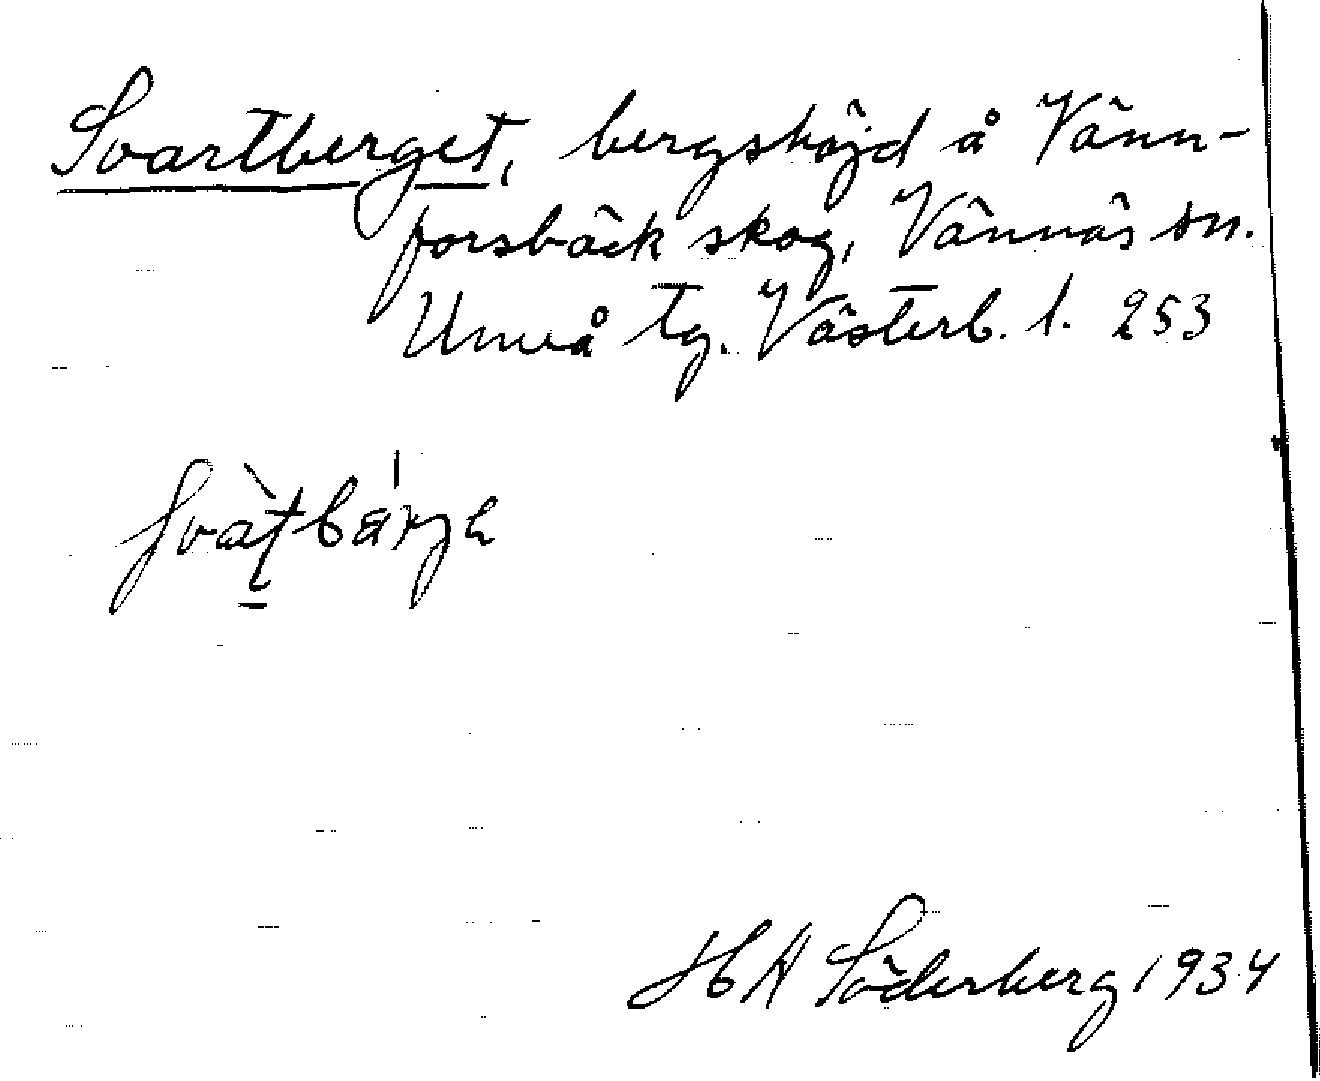 Svartberget, bergshöjd å Vänn-
forsbäck skog, Vännäs sn.
Umeå tg. Västerb. l. 253
H A Söderberg 1934